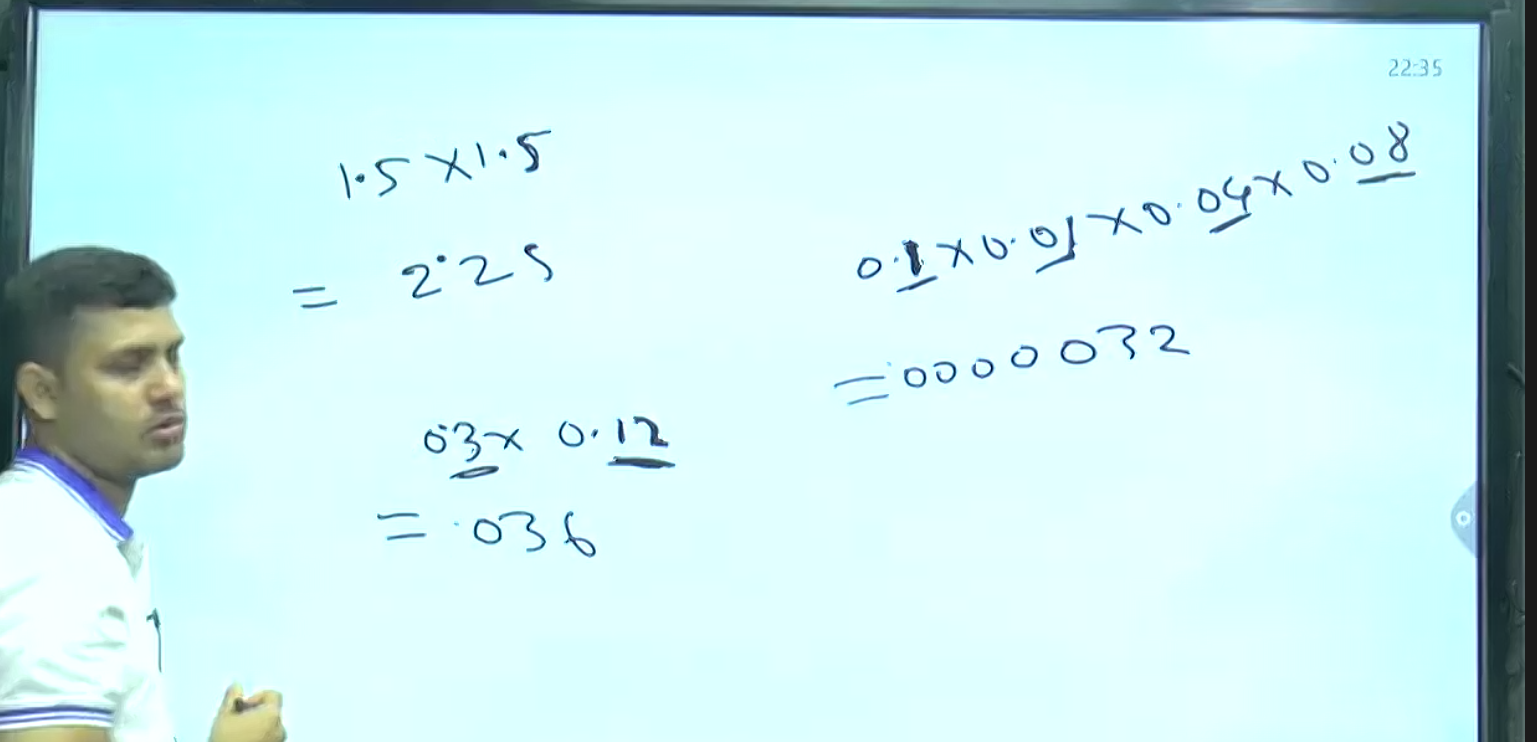 22:35
1.5 × 1.5
= 2.25
0.3 × 0.12
= .036
0.1 × 0.01 × 0.04 × 0.08
= .0000032